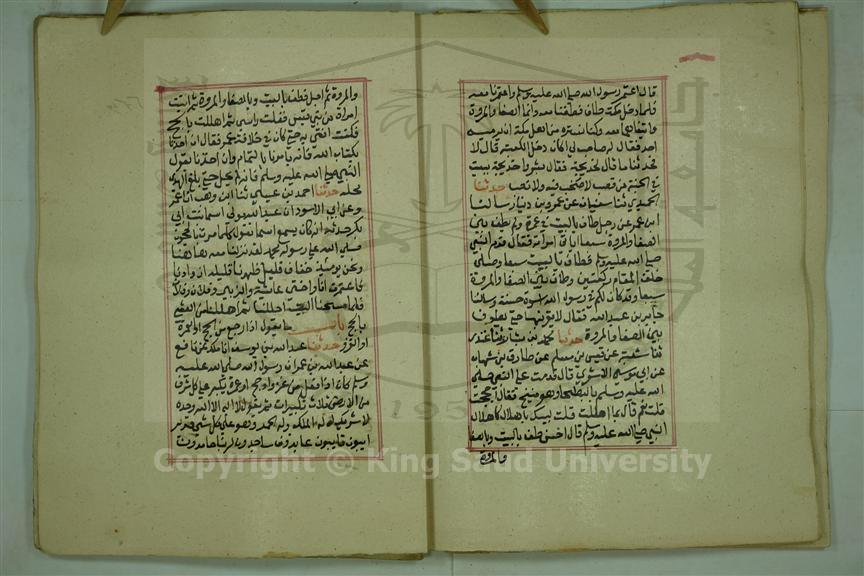 قال اعتمر رسول الله صلى الله عليه وسلم واعتمرنا معه
فلما دخل مكة طاف فطفنا معه واتى الصفا والمروة
واتيناها معه وكنا نستره من اهل مكة ان يرميه
احد فقال له صاحب لي اكان دخل الكعبة قال لا
فحدثنا ما قال لخديجة فقال بشروا خديجة ببيت
في الجنة من قصب لا صخب فيه ولا نصب حدثنا
الحميدي ثنا سفيان عن عمرو بن دينار سالنا
ابن عمر عن رجل طاف بالبيت في عمرة ولم يطف بين
الصفا والمروة سبعا اياتي امراته فقال قدم النبي
صلى الله عليه وسلم فطاف بالبيت سبعا وصلى
خلف المقام ركعتين وطاف بين الصفا والمروة
سبعا وقد كان لكم في رسول الله اسوة حسنة وسالنا
جابر بن عبد الله فقال لا يقربنها حتى يطوف
بين الصفا والمروة حدثنا محمد بن بشار ثنا غندر
ثنا شعبة عن قيس بن مسلم عن طارق بن شهاب
عن ابي موسى الاشعري قال قدمت على النبي صلى
الله عليه وسلم بالبطحاء وهو منيخ فقال احججت
قلت نعم قال بما اهللت قلت لبيك باهلال كاهلال
النبي صلى الله عليه وسلم قال احسنت طف بالبيت وبالصفا
والمروة
والمروة ثم احل فطفت بالبيت وبالصفا والمروة ثم اتيت
امراة من بني قيس ففلت راسي ثم اهللت بالحج
فكنت افتي به حتى كان في خلافة عمر فقال ان اخذنا
بكتاب الله فانه يامرنا بالتمام وان اخذنا بقول
النبي صلى الله عليه وسلم فانه لم يحل حتى بلغ الهدي
محله حدثنا احمد بن عيسى ثنا ابن وهب انا عمرو
عن ابي الاسود ان عبد الله مولى اسماء بنت ابي
بكر حدثه انه كان يسمع اسماء تقول كلما مرت بالحجون
صلى الله على رسوله محمد لقد نزلنا معه هاهنا
ونحن يومئذ خفاف قليل ظهرنا قليلة ازوادنا
فاعتمرت انا واختي عائشة والزبير وفلان وفلان
فلما مسحنا البيت احللنا ثم اهللنا من العشي
بالحج باب ما يقول اذا رجع من الحج او العمرة
او الغزو حدثنا عبد الله بن يوسف انا ملك عن نافع
عن عبد الله بن عمر ان رسول الله صلى الله عليه
وسلم كان اذا قفل من غزو او حج او عمرة يكبر على كل شرف
من الارض ثلاث تكبيرات ثم يقول لا اله الا الله وحده
لا شريك له له الملك وله الحمد وهو على كل شي قدير
ايبون تايبون عابدون ساجدون لربنا حامدون
Copyright © King Saud University
195